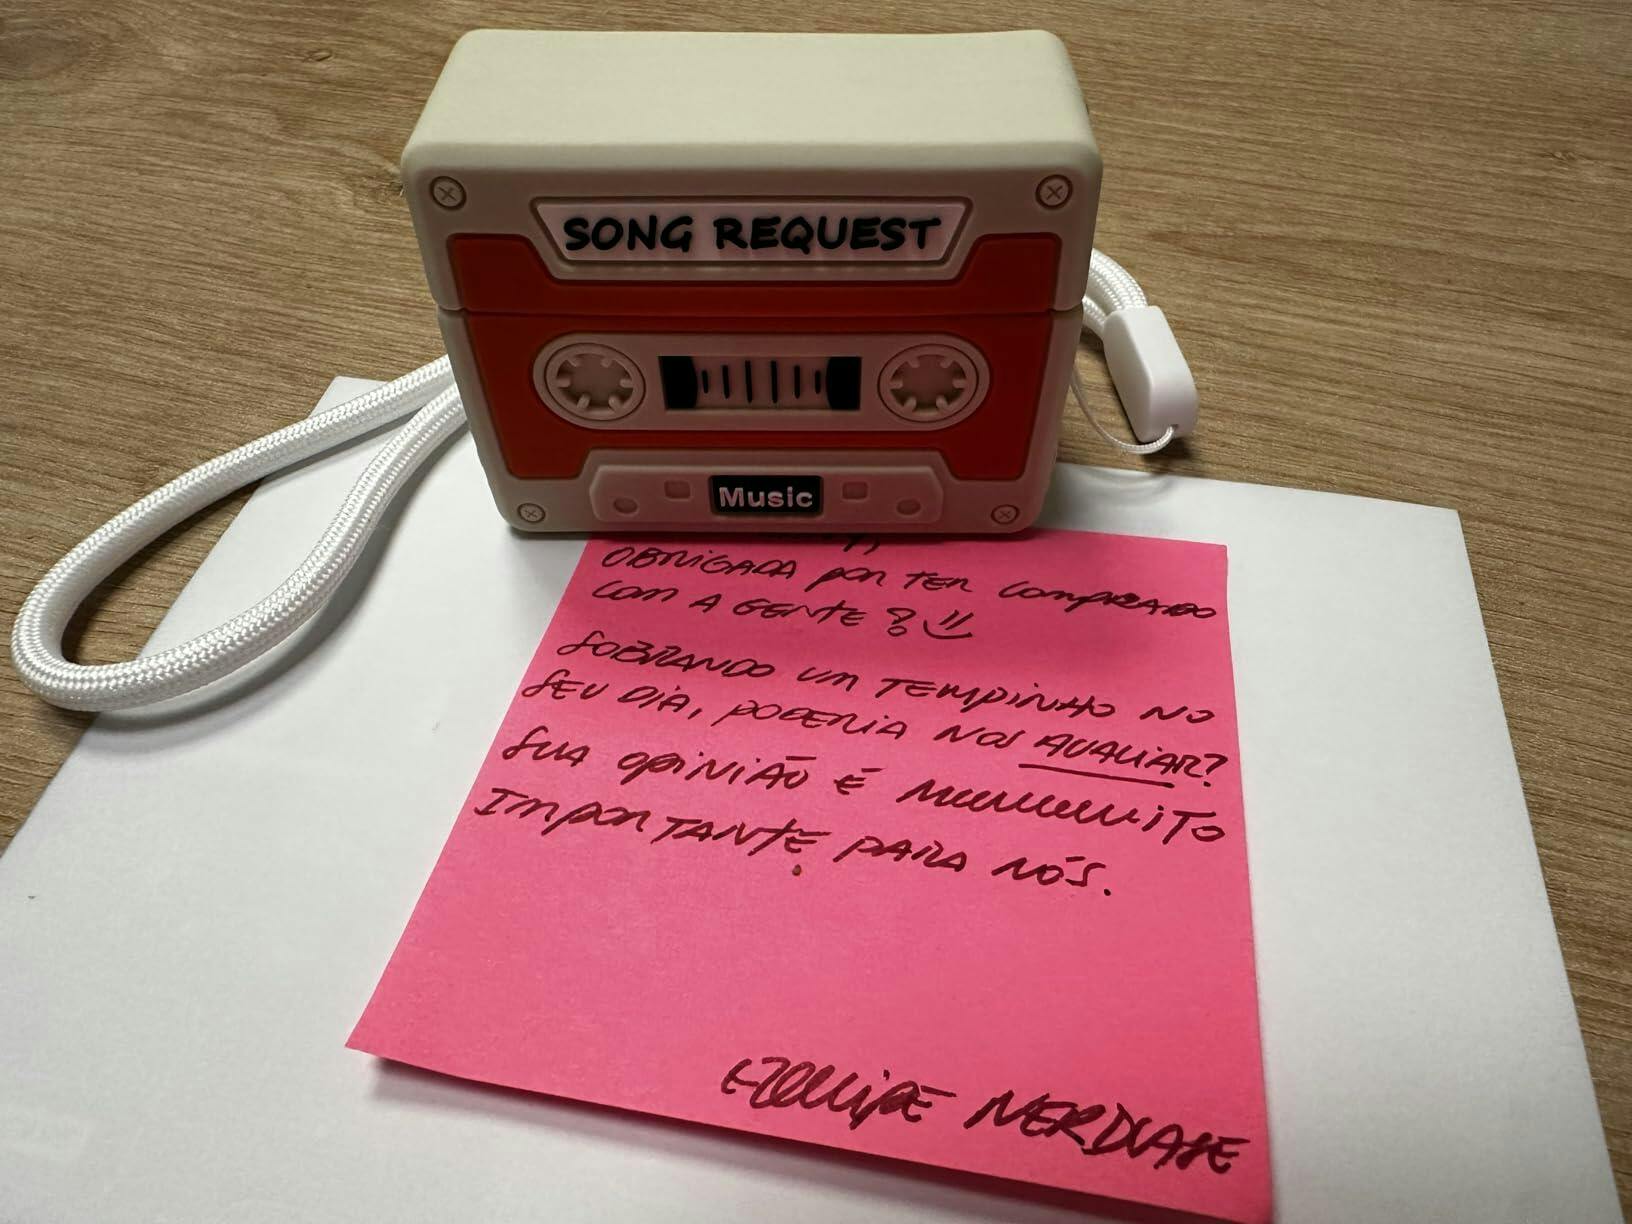 SONG REQUEST
Music
OBRIGADA POR TER COMPRADO
COM A GENTE?
SOBRANDO UM TEMPINHO NO
SEU DIA, PODERIA NOS AVALIAR?
SUA OPINIÃO É MUUUUUUITO
IMPORTANTE PARA NÓS.
EQUIPE